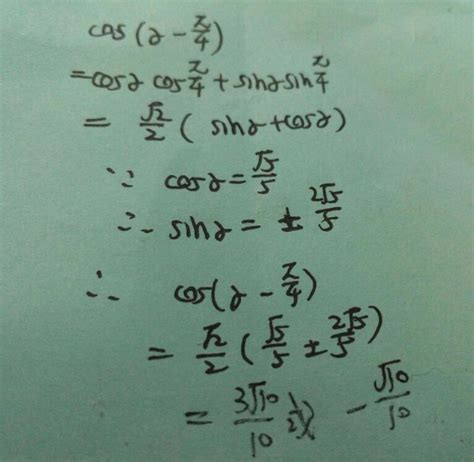 cos(α - π/4)
= cosα cosπ/4 + sinα sinπ/4
= √2/2 ( sinα + cosα)
∵ cosα = √5/5
∴ sinα = ± 2√5/5
∴ cos(α - π/4)
= √2/2 (√5/5 ± 2√5/5)
= 3√10/10 或 - √10/10